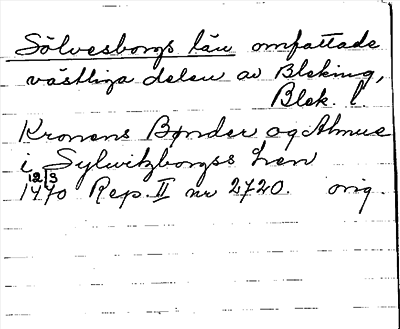 Sölvesborgs län omfattade
västliga delen av Bleking,
Blek. l.
Kronens Bønder og Almue
i Sylwitzborgss Len
12/3
1470 Rep. II nr 2720. orig.